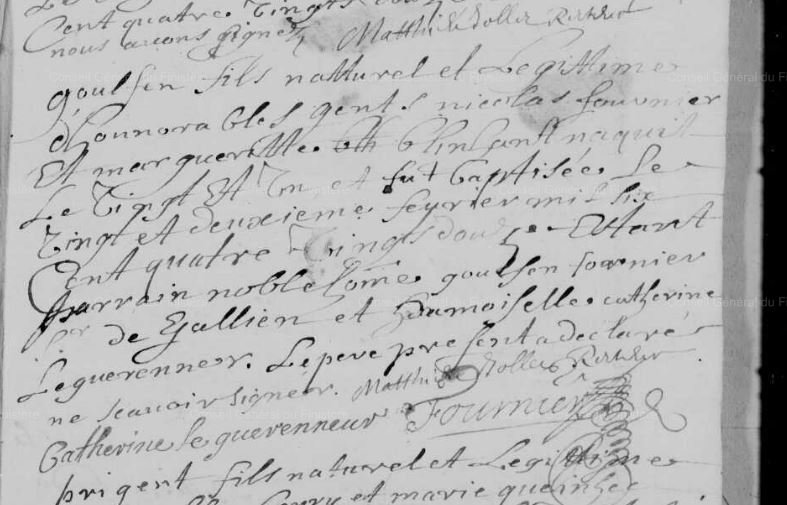 Cent quatre Vingts
nous avons signez Matthieu Rolland
goulfen fils naturel et Legittime
d'honnorables gents nicolas fournier
Et margueritte L'infant naquit
Le Vingt Et Un et fut baptisée Le
Vingt et deuxieme fevrier mil six
Cent quatre Vingts douze Etant
parrain noble home goulfen fournier
Sr de Gallien et damoiselle catherine
Leguerenneur. Le pere present a declaré
ne scavoir signer. Matthieu Rolland
Catherine le guerenneur Fournier
prigent fils naturel et Legittime
et marie queinnec
Conseil Général du Finistère